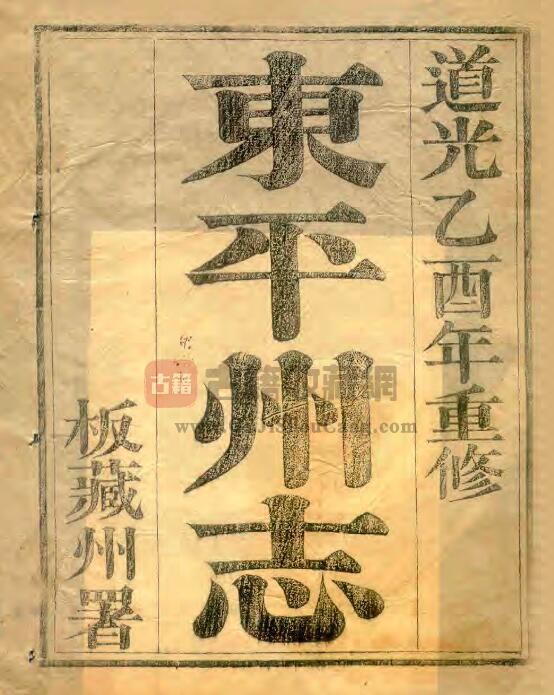 道光乙酉年重修
東平州志
板藏州署
古籍
古籍收藏網
www.GuJiShouCang.com